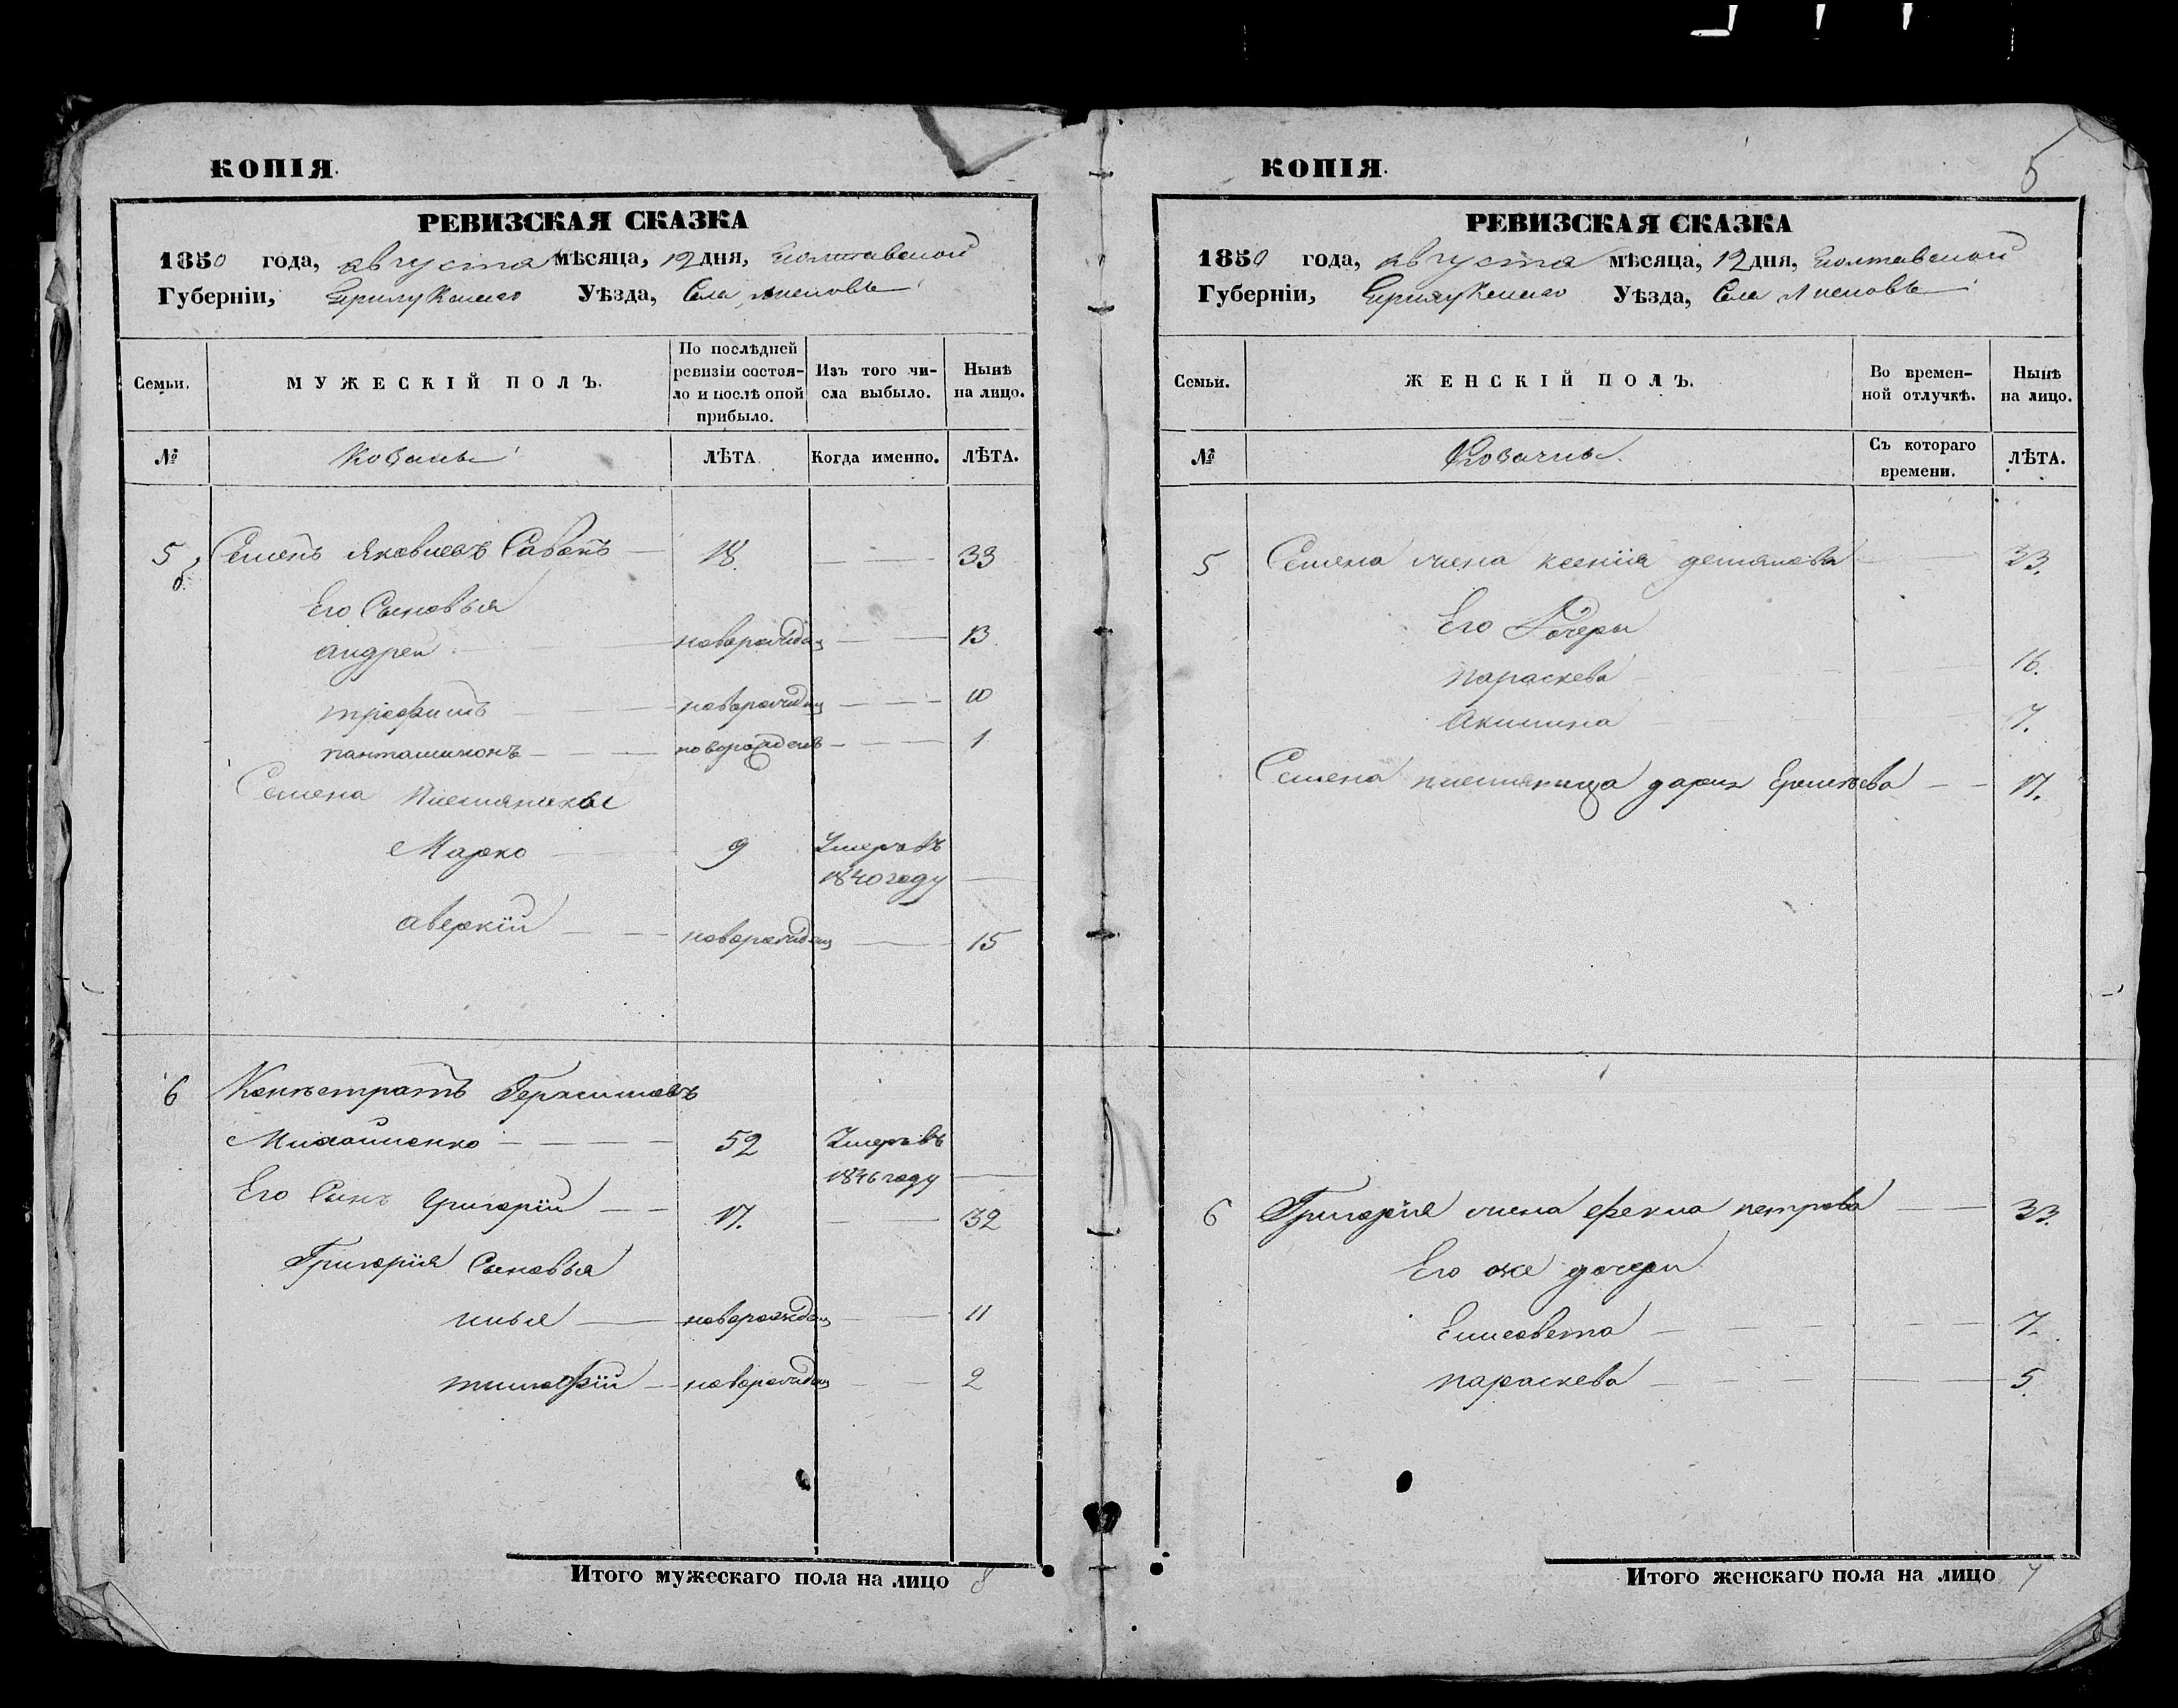 КОПІЯ.
РЕВИЗСКАЯ СКАЗКА
1850 года, августа мѣсяца, 12 дня, Полтавской
Губерніи, Прилуцкаго Уѣзда, Села
Семьи.
МУЖЕСКІЙ ПОЛЪ.
По послѣдней
ревизіи состоя-
ло и послѣ оной
прибыло.
Изъ того чи-
сла выбыло.
Нынѣ
на лицо.
№
Козаки
ЛѢТА.
Когда именно.
ЛѢТА.
5 Семенъ Яковлевъ 18. 33
Его Сыновья
андрей новорожден 13
трофимъ новорожден 10
панталимонъ новорожденъ 1
Семена племяники
Марко 9 Умеръ въ
1840 году
аверкій новорожден 15
6 Герасимовъ
Михайленко 52 Умеръ въ
1846 году
Его Сынъ Григорій 17. 32
Григорія Сыновья
илья новорожден 11
тимофій новорожден 2
Итого мужескаго пола на лицо 8
КОПІЯ.
5
РЕВИЗСКАЯ СКАЗКА
1850 года, августа мѣсяца, 12 дня, Полтавской
Губерніи, Прилуцкаго Уѣзда, Села
Семьи.
ЖЕНСКІЙ ПОЛЪ.
Во времен-
ной отлучкѣ.
Нынѣ
на лицо.
№
Козачки
Съ котораго
времени.
ЛѢТА.
5 Семена жена ксенія демянова 33.
Его Дочеры
параскева 16.
Акилина 7.
Семена племяница дария 17.
6 Григорія жена фекла петрова 33.
Его же дочери
Елисавета 7.
параскева 5.
Итого женскаго пола на лицо 7